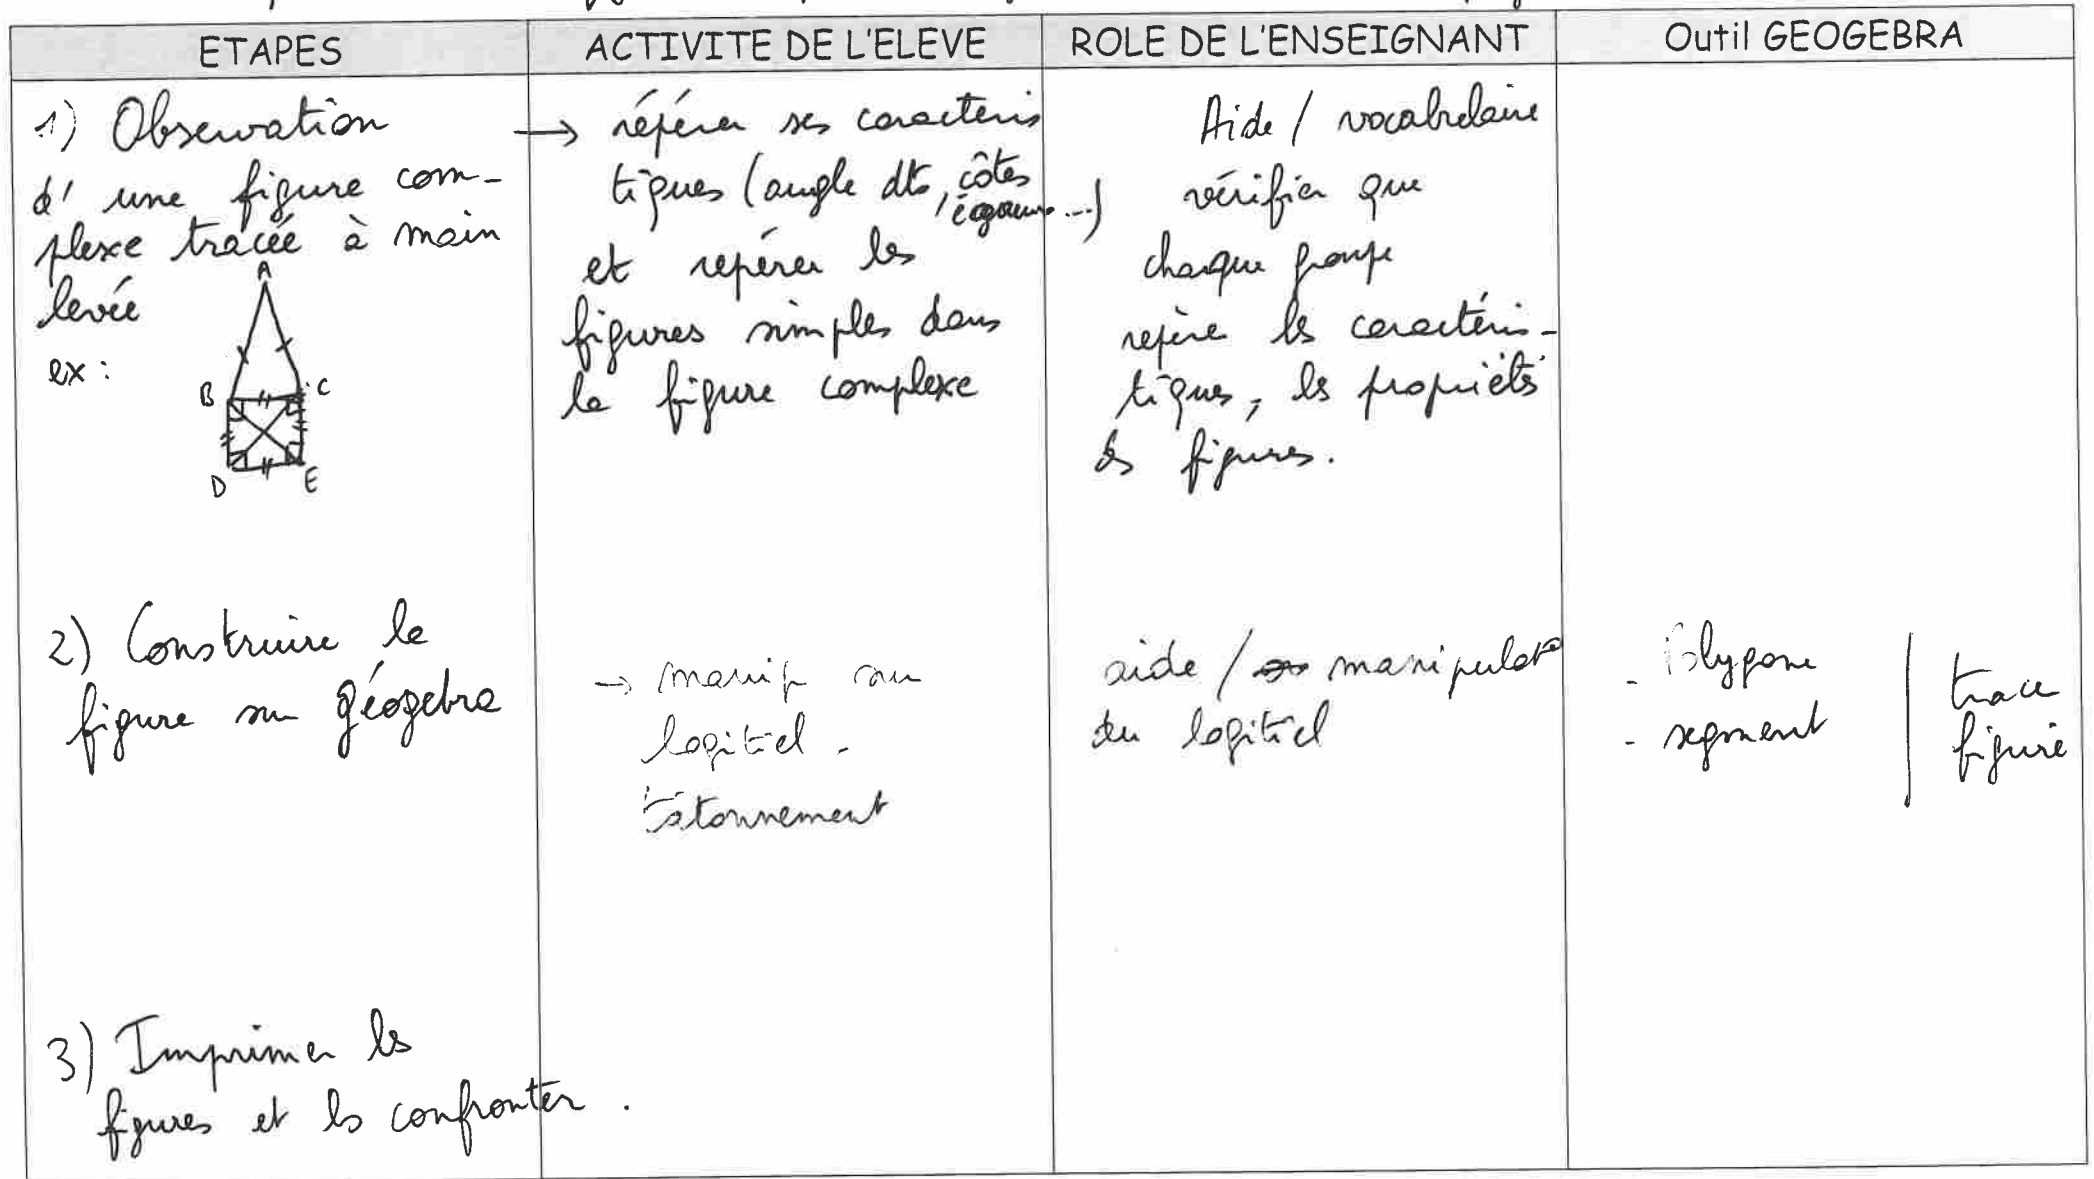 ETAPES
ACTIVITE DE L'ELEVE
ROLE DE L'ENSEIGNANT
Outil GEOGEBRA
1) Observation
d' une figure com-
plexe tracée à main
levée
ex :
A
B
C
D
E
→ répérer ses caractéris
tiques (angle dts, côtés
égaux ...)
et repérer les
figures simples dans
la figure complexe
Aide / vocabulaire
vérifier que
chaque groupe
repère les caractéris-
tiques, les propriétés
des figures.
2) Construire la
figure sur géogebra
→ manip sur
logiciel -
tâtonnement
aide / manipulat°
du logiciel
- Polygone
- segment
trace
figure
3) Imprimer les
figures et les confronter .